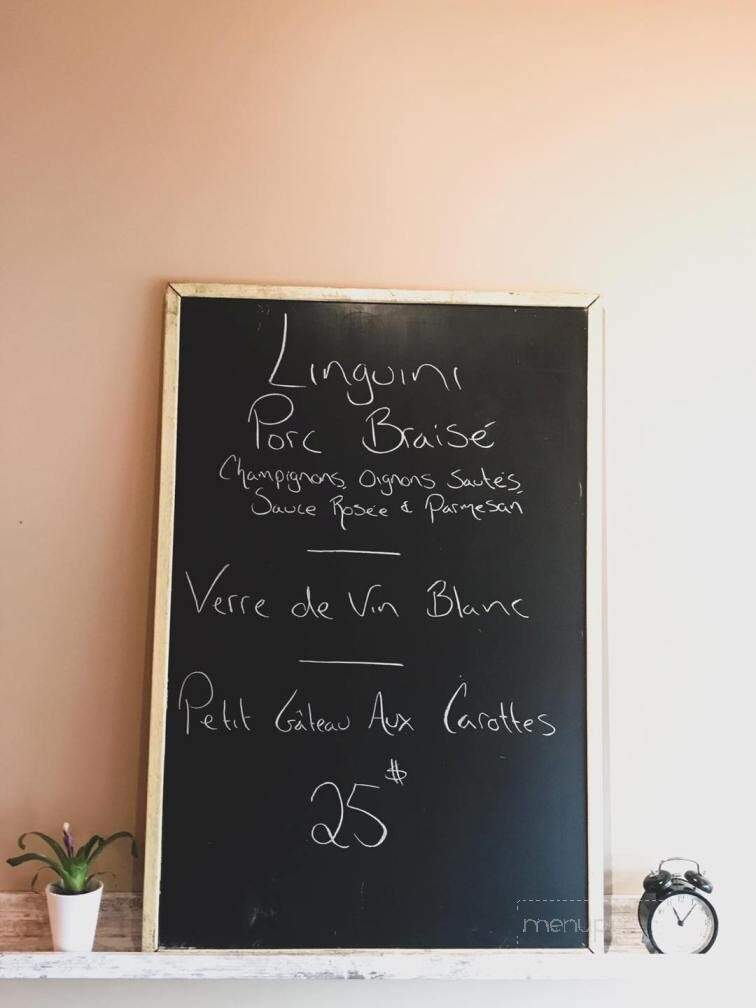 Linguini
Porc Braisé
Champignons, Oignons Sautés,
Sauce Rosée & Parmesan
Verre de Vin Blanc
Petit Gâteau Aux Carottes
25$
menu